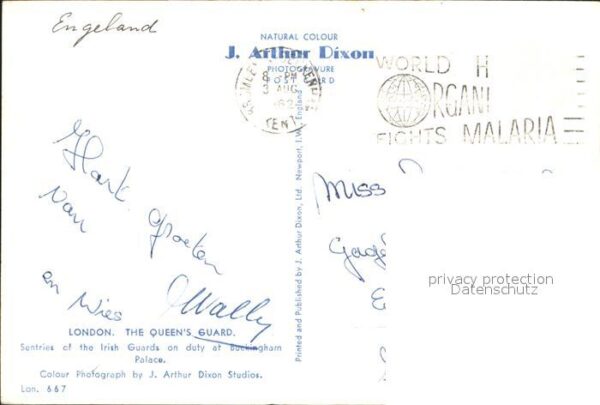 Engeland
NATURAL COLOUR
J. Arthur Dixon
PHOTOGRAVURE
POST CARD
8 - PM
3 AUG
KENT
WORLD H
ORGANI
FIGHTS MALARIA
Hart. groeten
van
Wally
en Wies
Miss
Printed and Published by J. Arthur Dixon, Ltd. Newport, I.W. England
privacy protection
Datenschutz
LONDON. THE QUEEN'S GUARD.
Sentries of the Irish Guards on duty at Buckingham
Palace.
Colour Photograph by J. Arthur Dixon Studios.
Lon. 667